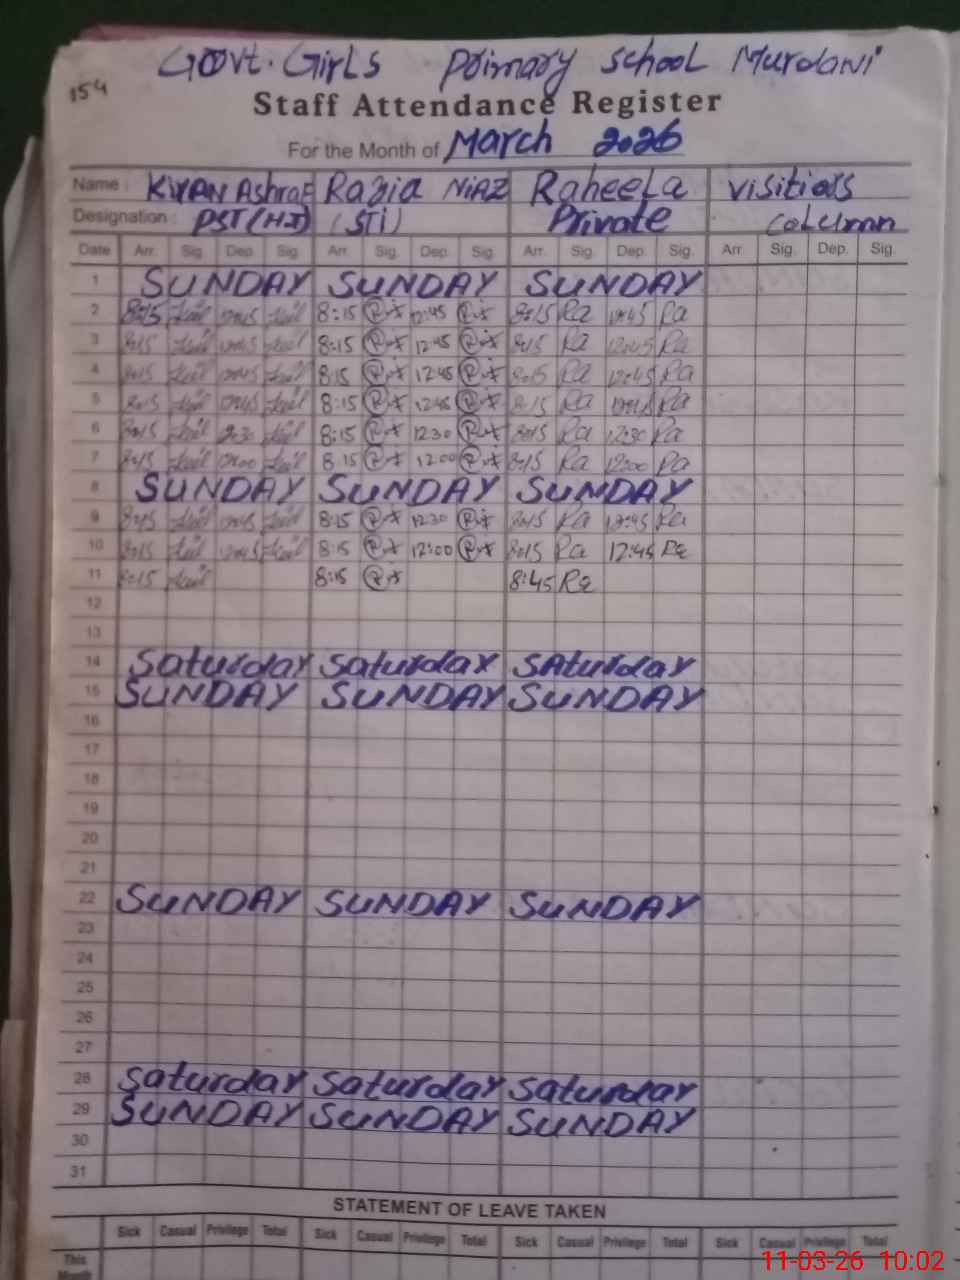 Govt. Girls Primary School Murdani
154
Staff Attendance Register
For the Month of March 2026
Name : Kiran Ashraf Razia Niaz Raheela Visitiors
Designation : PST(HT) (STI) Private Column
Date Arr. Sig. Dep. Sig. Arr. Sig. Dep. Sig. Arr. Sig. Dep. Sig. Arr. Sig. Dep. Sig.
1 SUNDAY SUNDAY SUNDAY
2 8:15 12:45 8:15 12:45 8:15 Ra 12:45 Ra
3 8:15 12:45 8:15 12:45 8:15 Ra 12:45 Ra
4 8:15 12:45 8:15 12:45 8:15 Ra 12:45 Ra
5 8:15 12:45 8:15 12:45 8:15 Ra Ra
6 8:15 12:30 8:15 12:30 8:15 Ra 12:30 Ra
7 8:15 12:00 8:15 12:00 8:15 Ra 12:00 Ra
8 SUNDAY SUNDAY SUNDAY
9 8:15 12:45 8:15 12:30 8:15 Ra 12:45 Ra
10 8:15 12:45 8:15 12:00 8:15 Ra 12:45 Ra
11 8:15 8:15 8:45 Ra
12
13
14 Saturday Saturday SAturday
15 SUNDAY SUNDAY SUNDAY
16
17
18
19
20
21
22 SUNDAY SUNDAY SUNDAY
23
24
25
26
27
28 Saturday Saturday Saturday
29 SUNDAY SUNDAY SUNDAY
30
31
STATEMENT OF LEAVE TAKEN
Sick Casual Privilege Total Sick Casual Privilege Total Sick Casual Privilege Total Sick Casual Privilege Total
This
Month
11-03-26 10:02